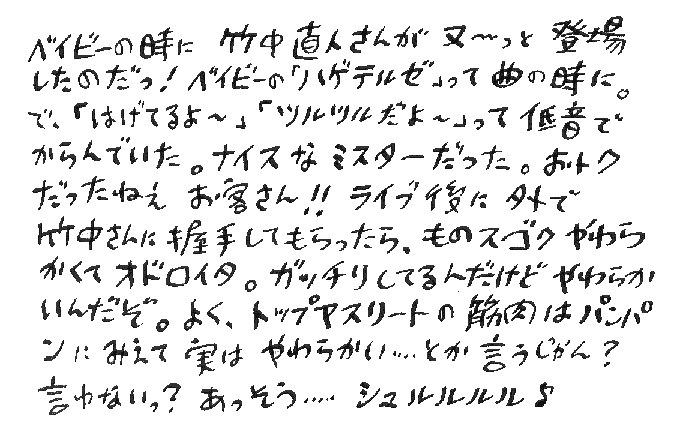 ベイビーの時に 竹中直人さんが 又〜っと 登場
したのだっ！ベイビーの「ハゲテルゼ」って曲の時に。
で、「はげてるよ〜」「ツルツルだよ〜」って低音で
からんでいた。ナイスなミスターだった。おトク
だったねぇ お客さん!! ライブ後に外で
竹中さんに握手してもらったら、ものスゴクやわら
かくてオドロイタ。ガッチリしてるんだけどやわらか
いんだぞ。よく、トップアスリートの筋肉はパンパ
ンにみえて実はやわらかい…とか言うじゃん？
言わないっ？あっそう…. シュルルルル♪